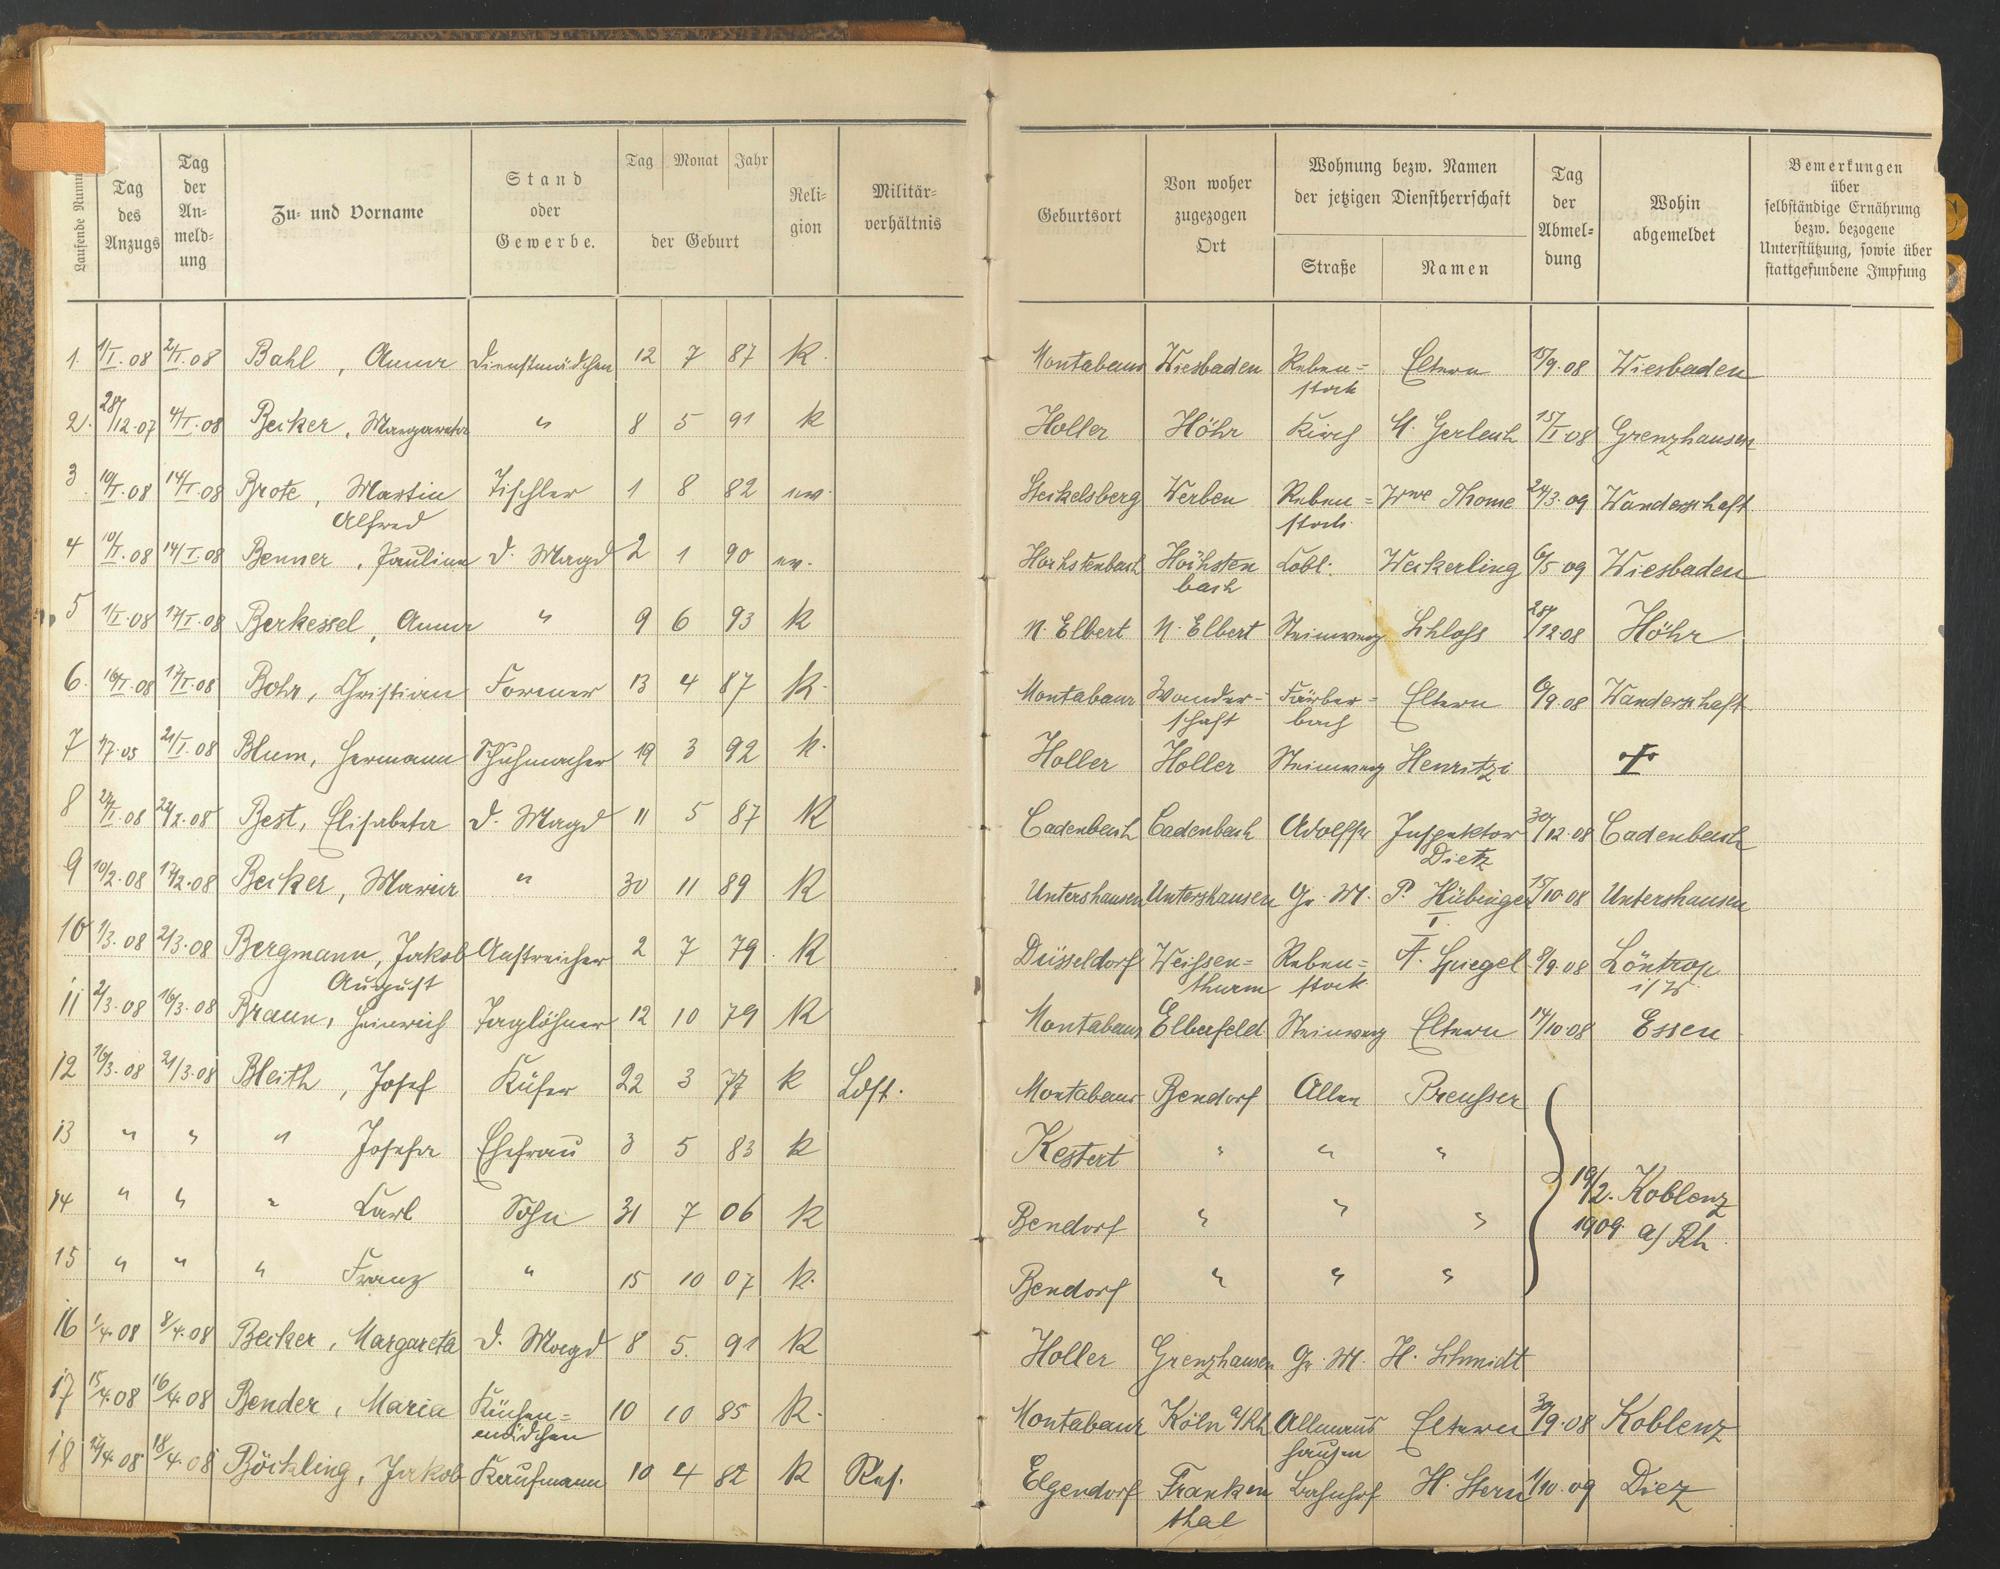 Laufende Numm
Tag des Anzugs
Tag der An= meld= ung
Zu= und Vorname
Stand oder Gewerbe.
Tag Monat Jahr
der Geburt
Reli= gion
Militär= verhältnis
Geburtsort
Von woher zugezogen Ort
Wohnung bezw. Namen der jetzigen Dienstherrschaft
Straße Namen
Tag der Abmel= dung
Wohin abgemeldet
Bemerkungen über selbständige Ernährung bezw. bezogene Unterstützung, sowie über stattgefundene Impfung
1. 1/I.08 2/I.08 Bahl, Anna Dienstmädchen 12 7 87 K. Montabaur Wiesbaden Reben= stock Eltern 15/9.08 Wiesbaden
2. 28/12.07 4/I.08 Becker, Margareta " 8 5 91 K Holler Höhr Kirch M. Gerlach 15/I.08 Grenzhausen
3. 10/I.08 14/I.08 Brote, Martin Alfred Tischler 1 8 82 ev. Steckelsberg Werben Reben= stock. Wwe Thome 24/3.09 Wanderschaft
4 10/I.08 14/I.08 Benner, Pauline d. Magd 2 1 90 ev. Höchstenbach Höchsten bach Löbl. Weckerling 6/5 09 Wiesbaden
5 1/I.08 17/I.08 Berkessel, Anna " 9 6 93 K N. Elbert N. Elbert Steinweg Schloss 28/12 08 Höhr
6. 16/I.08 17/I.08 Bohr, Christian Former 13 4 87 K. Montabaur Wander- schaft Färber= bach Eltern 6/9.08 Wanderschaft
7 1/7.05 21/I.08 Blum, Hermann Schuhmacher 19 3 92 K. Holler Holler Steinweg Henritzi +
8 22/I.08 22/2.08 Best, Elisabeta d. Magd 11 5 87 K Cadenbach Cadenbach Adolffs Inspektor Dietz 30/12.08 Cadenbach
9 10/2.08 17/2.08 Becker, Maria " 30 11 89 K Untershausen Untershausen Gr. M. P. Hübinger I. 15/10.08 Untershausen
10 1/3.08 2/3.08 Bergmann, Jakob August Anstreicher 2 7 79. K Düsseldorf Weissen= thurm Reben= stock A. Spiegel 9/9.08 Löntrop i/W.
11 2/3.08 16/3.08 Braun, Heinrich Taglöhner 12 10 79 K Montabaur Elberfeld Steinweg Eltern 14/10.08 Essen
12 16/3.08 21/3.08 Bleith, Josef Küfer 22 3 77 K Ldst. Montabaur Bendorf Allee Preusser
13 " " " Josefa Ehefrau 3 5 83 K Kestert " " "
14 " " " Carl Sohn 31 7 06 K Bendorf " " " 19/2. Koblenz
1909. a/Rh.
15 " " " Franz " 15 10 07 K. Bendorf " " "
16 1/4.08 8/4.08 Becker, Margareta d. Magd 8 5. 91 K Holler Grenzhausen Gr. M. H. Schmidt
17 15/4.08 16/4.08 Bender, Maria Küchen= mädchen 10 10 85 K. Montabaur Köln a/Rh Allmans hausen Eltern 30/9.08 Koblenz
18 17/4.08 18/4.08 Böckling, Jakob Kaufmann 10 4 82 K Res. Elgendorf Franken thal Bahnhof H. Stern 1/10.09 Diez